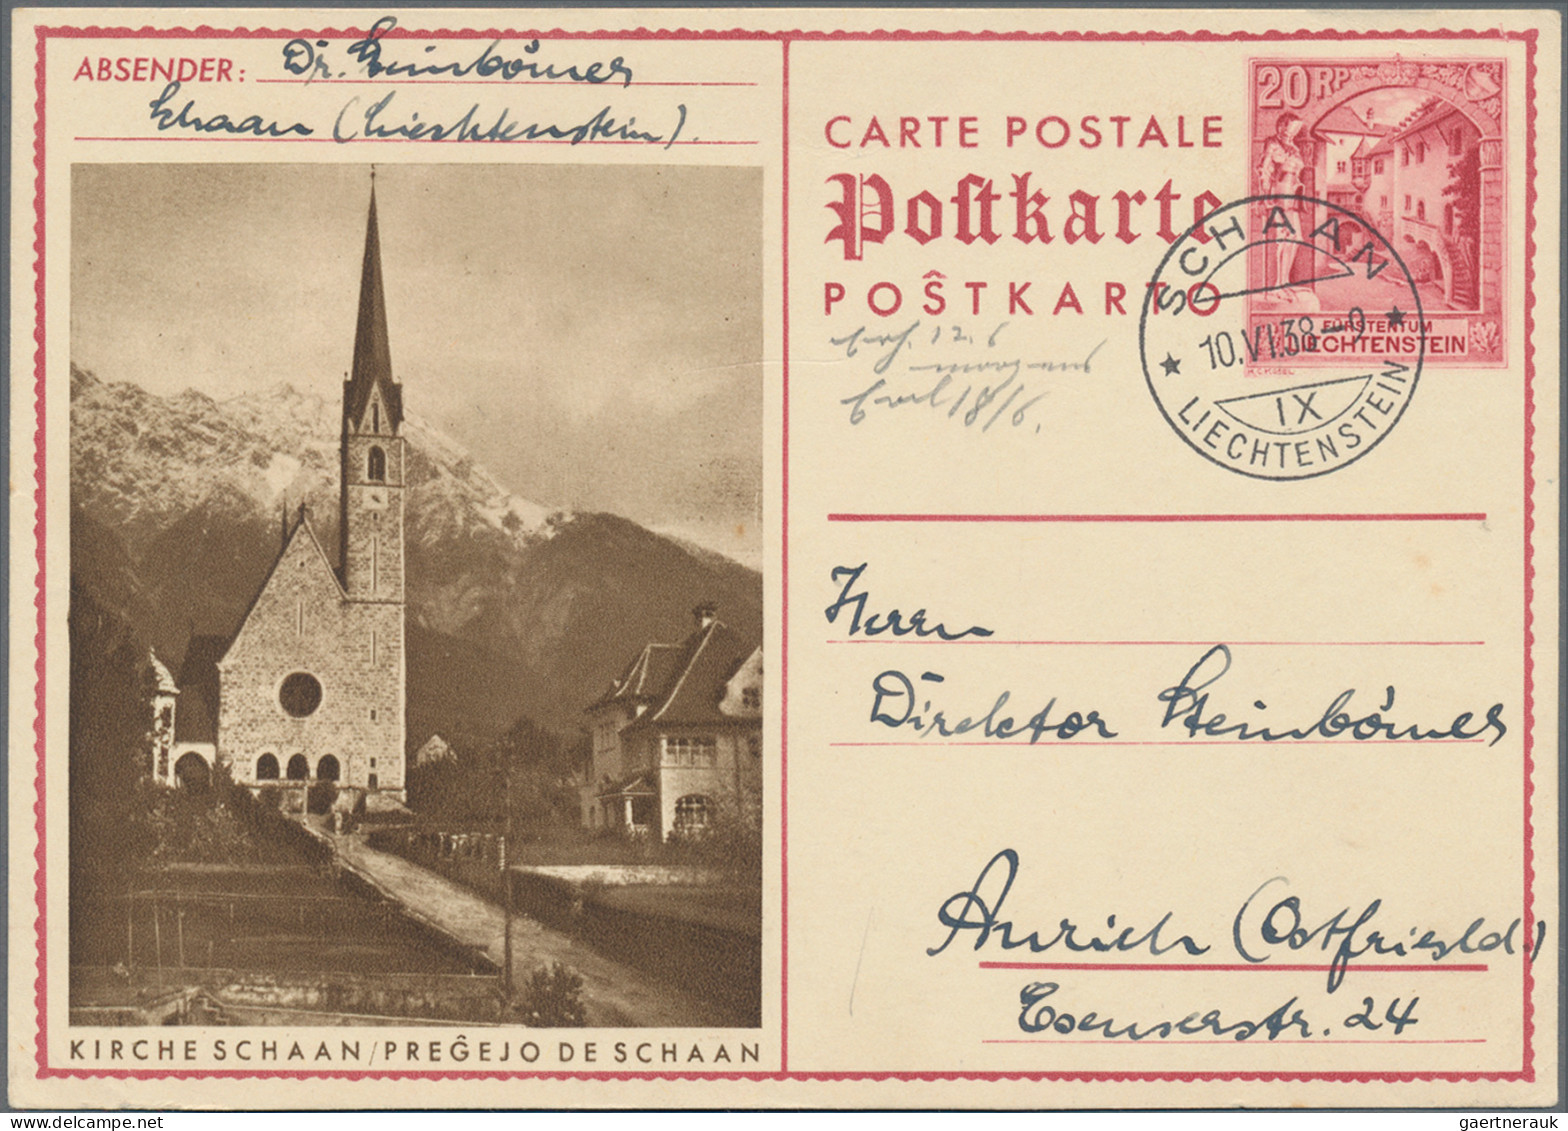 ABSENDER: Dr. Steinbömer
Schaan (Liechtenstein).
KIRCHE SCHAAN/PREĜEJO DE SCHAAN
CARTE POSTALE
Poſtkarte
POŜTKARTO
20 RP
FÜRSTENTUM
LIECHTENSTEIN
SCHAAN
10.VI.38-9
IX
LIECHTENSTEIN
Erh. 12.6
morgens
18/6.
Herrn
Direktor Steinbömer
Aurich (Ostfriesld.)
Esenserstr. 24
gaertnerauk